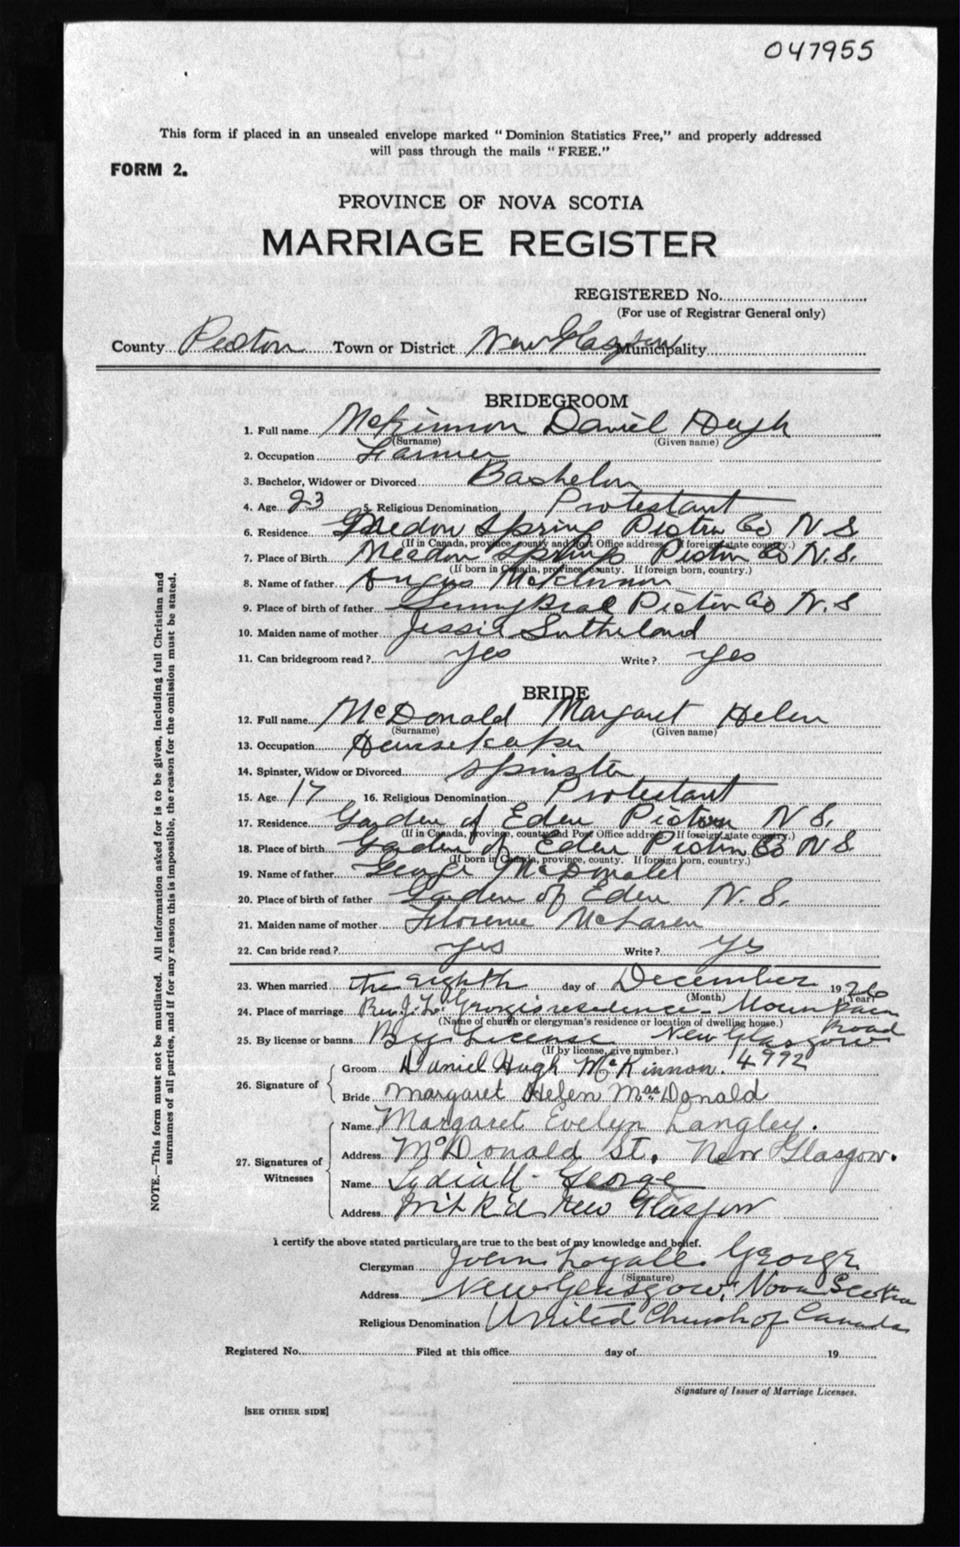 047955
This form if placed in an unsealed envelope marked "Dominion Statistics Free," and properly addressed
will pass through the mails "FREE."
FORM 2.
PROVINCE OF NOVA SCOTIA
MARRIAGE REGISTER
REGISTERED No.
(For use of Registrar General only)
County Pictou Town or District New Glasgow Municipality
BRIDEGROOM
1. Full name McKinnon Daniel Hugh
(Surname) (Given name)
2. Occupation Farmer
3. Bachelor, Widower or Divorced Bachelor
4. Age 23 5. Religious Denomination Protestant
6. Residence Spring Pictou Co N S
(If in Canada, province, county and Post Office address. If foreign state country.)
7. Place of Birth Meadow Springs Pictou Co N.S.
(If born in Canada, province, county. If foreign born, country.)
8. Name of father Angus McKinnon
9. Place of birth of father Pictou Co N.S
10. Maiden name of mother Jessie Sutherland
11. Can bridegroom read? Yes Write? Yes
BRIDE
12. Full name McDonald Margaret Helen
(Surname) (Given name)
13. Occupation Housekeeper
14. Spinster, Widow or Divorced Spinster
15. Age 17 16. Religious Denomination Protestant
17. Residence Garden of Eden Pictou N S.
(If in Canada, province, county and Post Office address. If foreign state country.)
18. Place of birth Garden of Eden Pictou Co N S
(If born in Canada, province, county. If foreign born, country.)
19. Name of father George McDonald
20. Place of birth of father Garden of Eden N. S.
21. Maiden name of mother Florence McLaren
22. Can bride read? Yes Write? Yes
23. When married the eighth day of December 1926
(Month) (Year)
24. Place of marriage Rev. J. L. George's residence - Mountain Road
(Name of church or clergyman's residence or location of dwelling house.)
25. By license or banns By License New Glasgow
(If by license, give number.) 4992
26. Signature of
Groom Daniel Hugh McKinnon.
Bride Margaret Helen MacDonald
27. Signatures of Witnesses
Name Margaret Evelyn Langley.
Address McDonald St. New Glasgow.
Name Lydia George
Address New Glasgow
I certify the above stated particulars are true to the best of my knowledge and belief.
Clergyman John Loyall George
(Signature)
Address New Glasgow, Nova Scotia
Religious Denomination United Church of Canada
Registered No. Filed at this office day of 19
Signature of Issuer of Marriage Licenses.
[SEE OTHER SIDE]
NOTE.—This form must not be mutilated. All information asked for is to be given, including full Christian and
surnames of all parties, and if for any reason this is impossible, the reason for the omission must be stated.